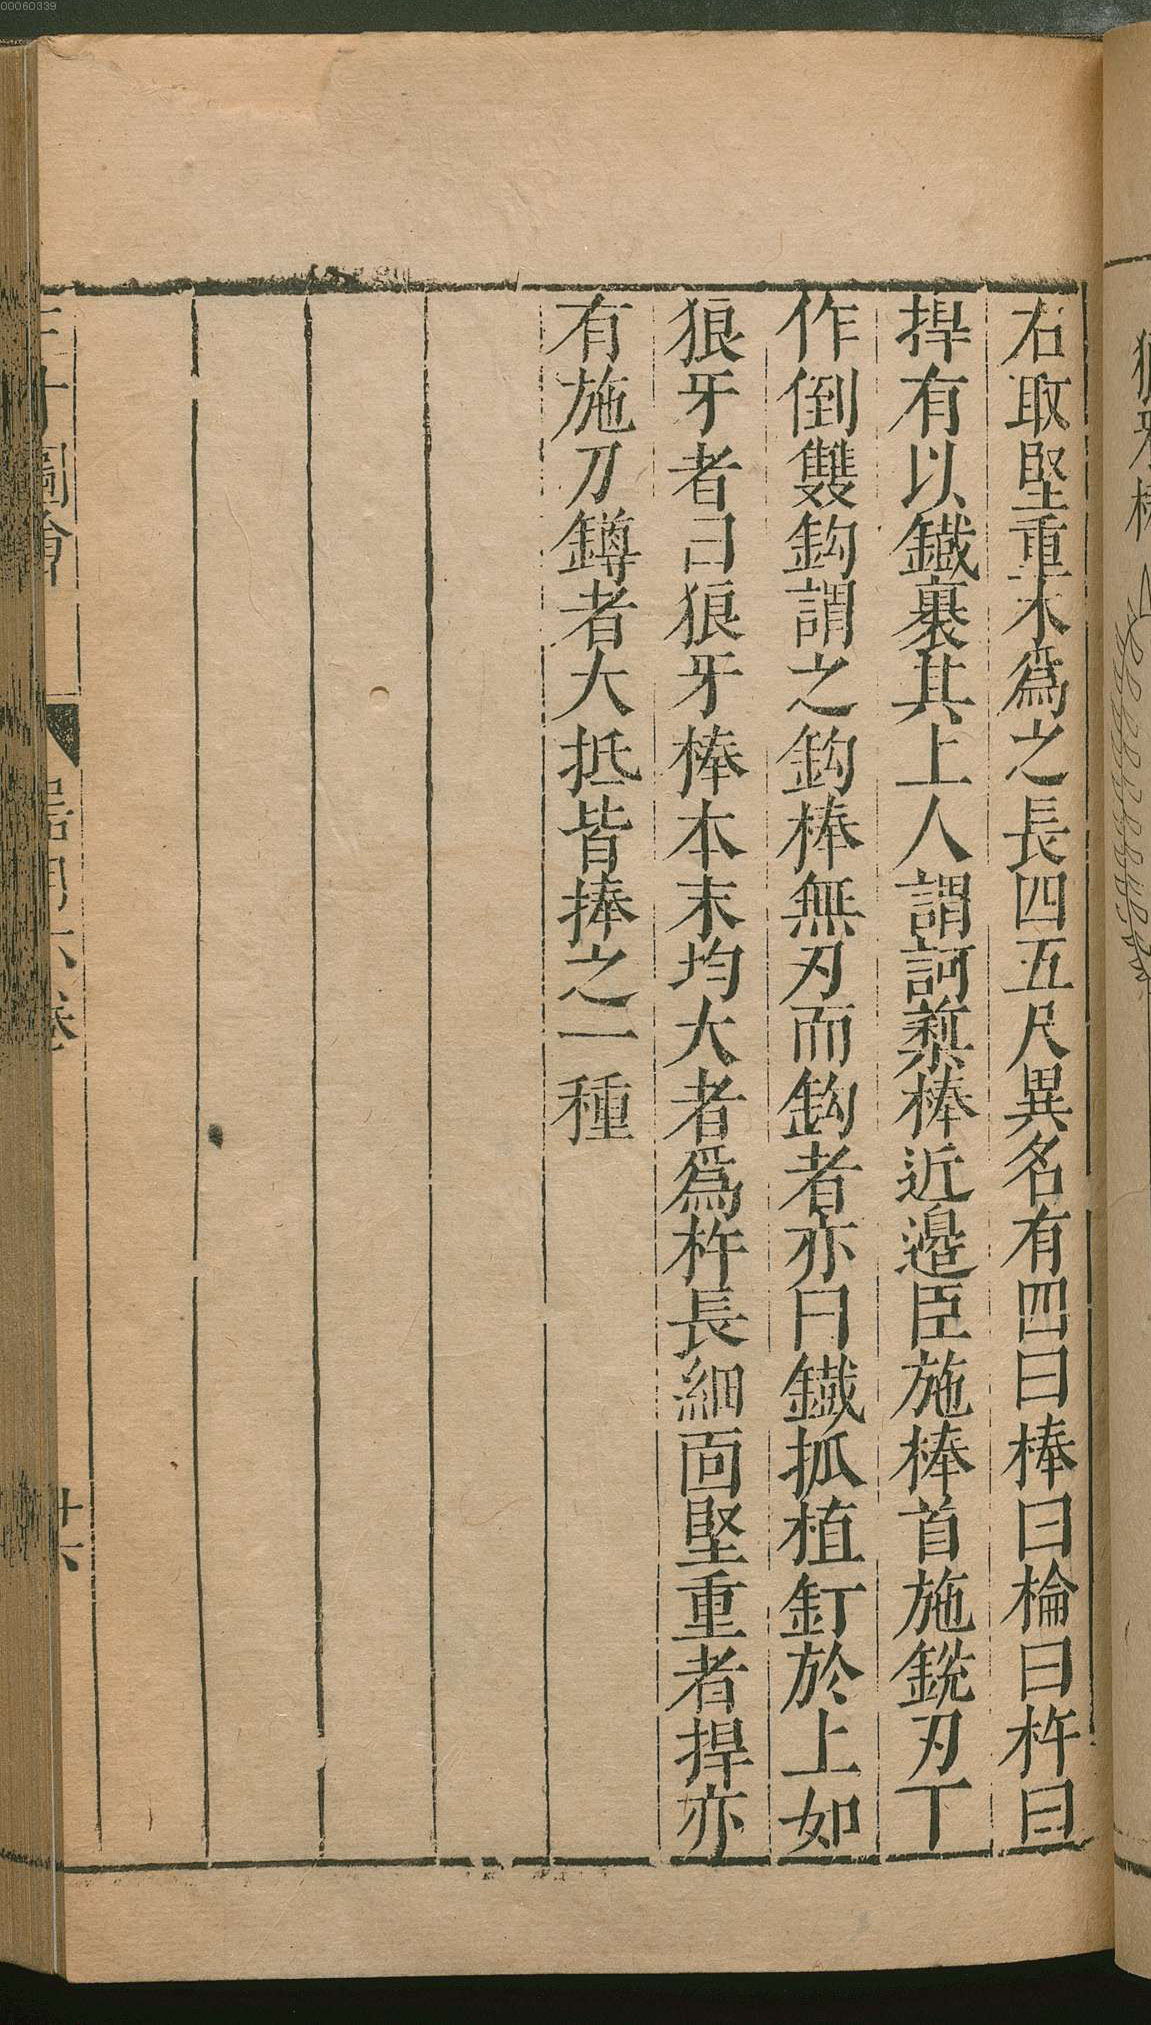 右取堅重木爲之長四五尺異名有四曰棒曰棆曰杵曰
捍有以鐵裹其上人謂訶蔾棒近邊臣施棒首施銳刃下
作倒雙鈎謂之鈎棒無刃而鈎者亦曰鐵抓植釘於上如
狼牙者曰狼牙棒本末均大者爲杵長細而堅重者捍亦
有施刀鐏者大抵皆捧之一種
三才圖會
器用六卷
廿六
狼牙棒
00060339